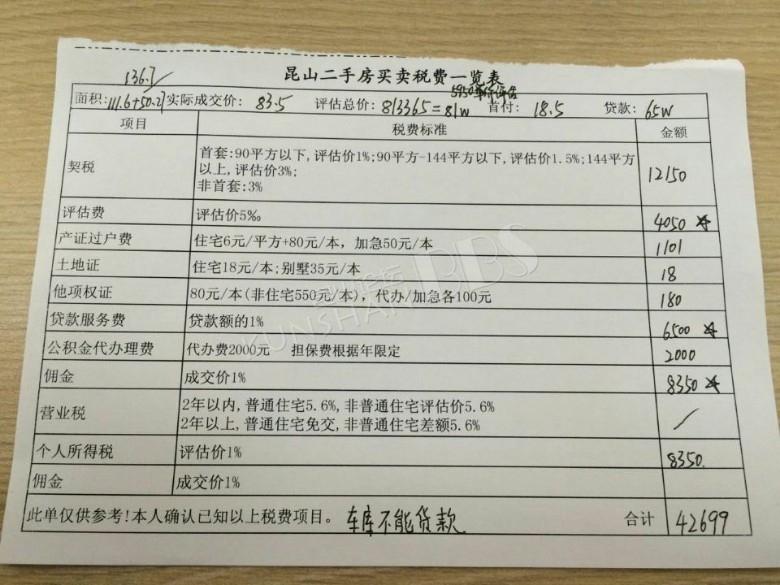 昆山二手房买卖税费一览表
136.7
5950单价评估
面积:111.6+50.27 实际成交价: 83.5 评估总价: 813365=81W 首付: 18.5 贷款: 65W
项目 税费标准 金额
契税 首套:90平方以下,评估价1%;90平方-144平方以下,评估价1.5%;144平方
以上,评估价3%;
非首套:3% 12150
评估费 评估价5‰ 4050
产证过户费 住宅6元/平方+80元/本，加急50元/本 1101
土地证 住宅18元/本;别墅35元/本 18
他项权证 80元/本(非住宅550元/本)，代办/加急各100元 180
贷款服务费 贷款额的1% 6500
公积金代办理费 代办费2000元 担保费根据年限定 2000
佣金 成交价1% 8350
营业税 2年以内,普通住宅5.6%,非普通住宅评估价5.6%
2年以上,普通住宅免交,非普通住宅差额5.6% /
个人所得税 评估价1% 8350.
佣金 成交价1%
此单仅供参考!本人确认已知以上税费项目。 车库不能贷款 合计 42699
KUNSHAN BBS